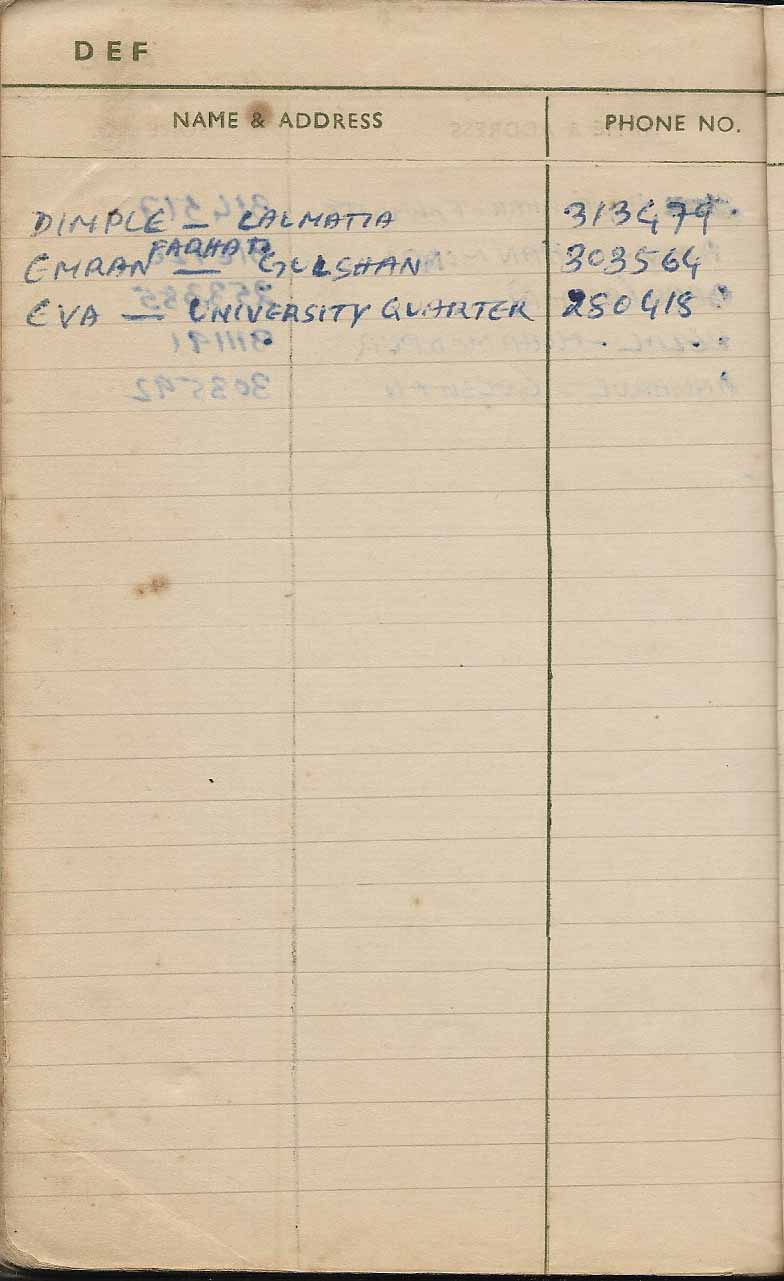 DEF
NAME & ADDRESS PHONE NO.
DIMPLE — LALMATIA 313479
FARHAT
EMRAN — GULSHAN 303564
EVA — UNIVERSITY QUARTER 250418
303592